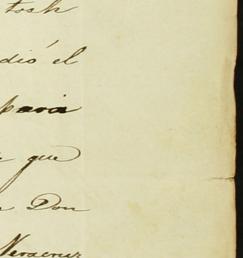 tosh
dió el
para
que
Don
Veracruz